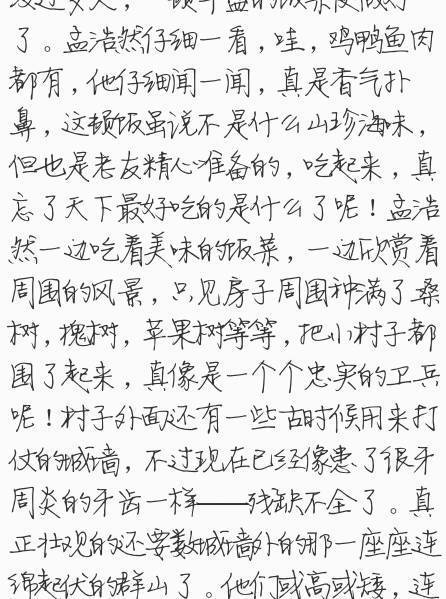 了。孟浩然仔细一看，哇，鸡鸭鱼肉
都有，他仔细闻一闻，真是香气扑
鼻，这顿饭虽说不是什么山珍海味，
但也是老友精心准备的，吃起来，真
忘了天下最好吃的是什么了呢！孟浩
然一边吃着美味的饭菜，一边欣赏着
周围的风景，只见房子周围种满了桑
树，槐树，苹果树等等，把小村子都
围了起来，真像是一个个忠实的卫兵
呢！村子外面还有一些古时候用来打
仗的城墙，不过现在已经像患了很牙
周炎的牙齿一样——残缺不全了。真
正壮观的还要数城墙外的那一座座连
绵起伏的群山了。他们或高或矮，连